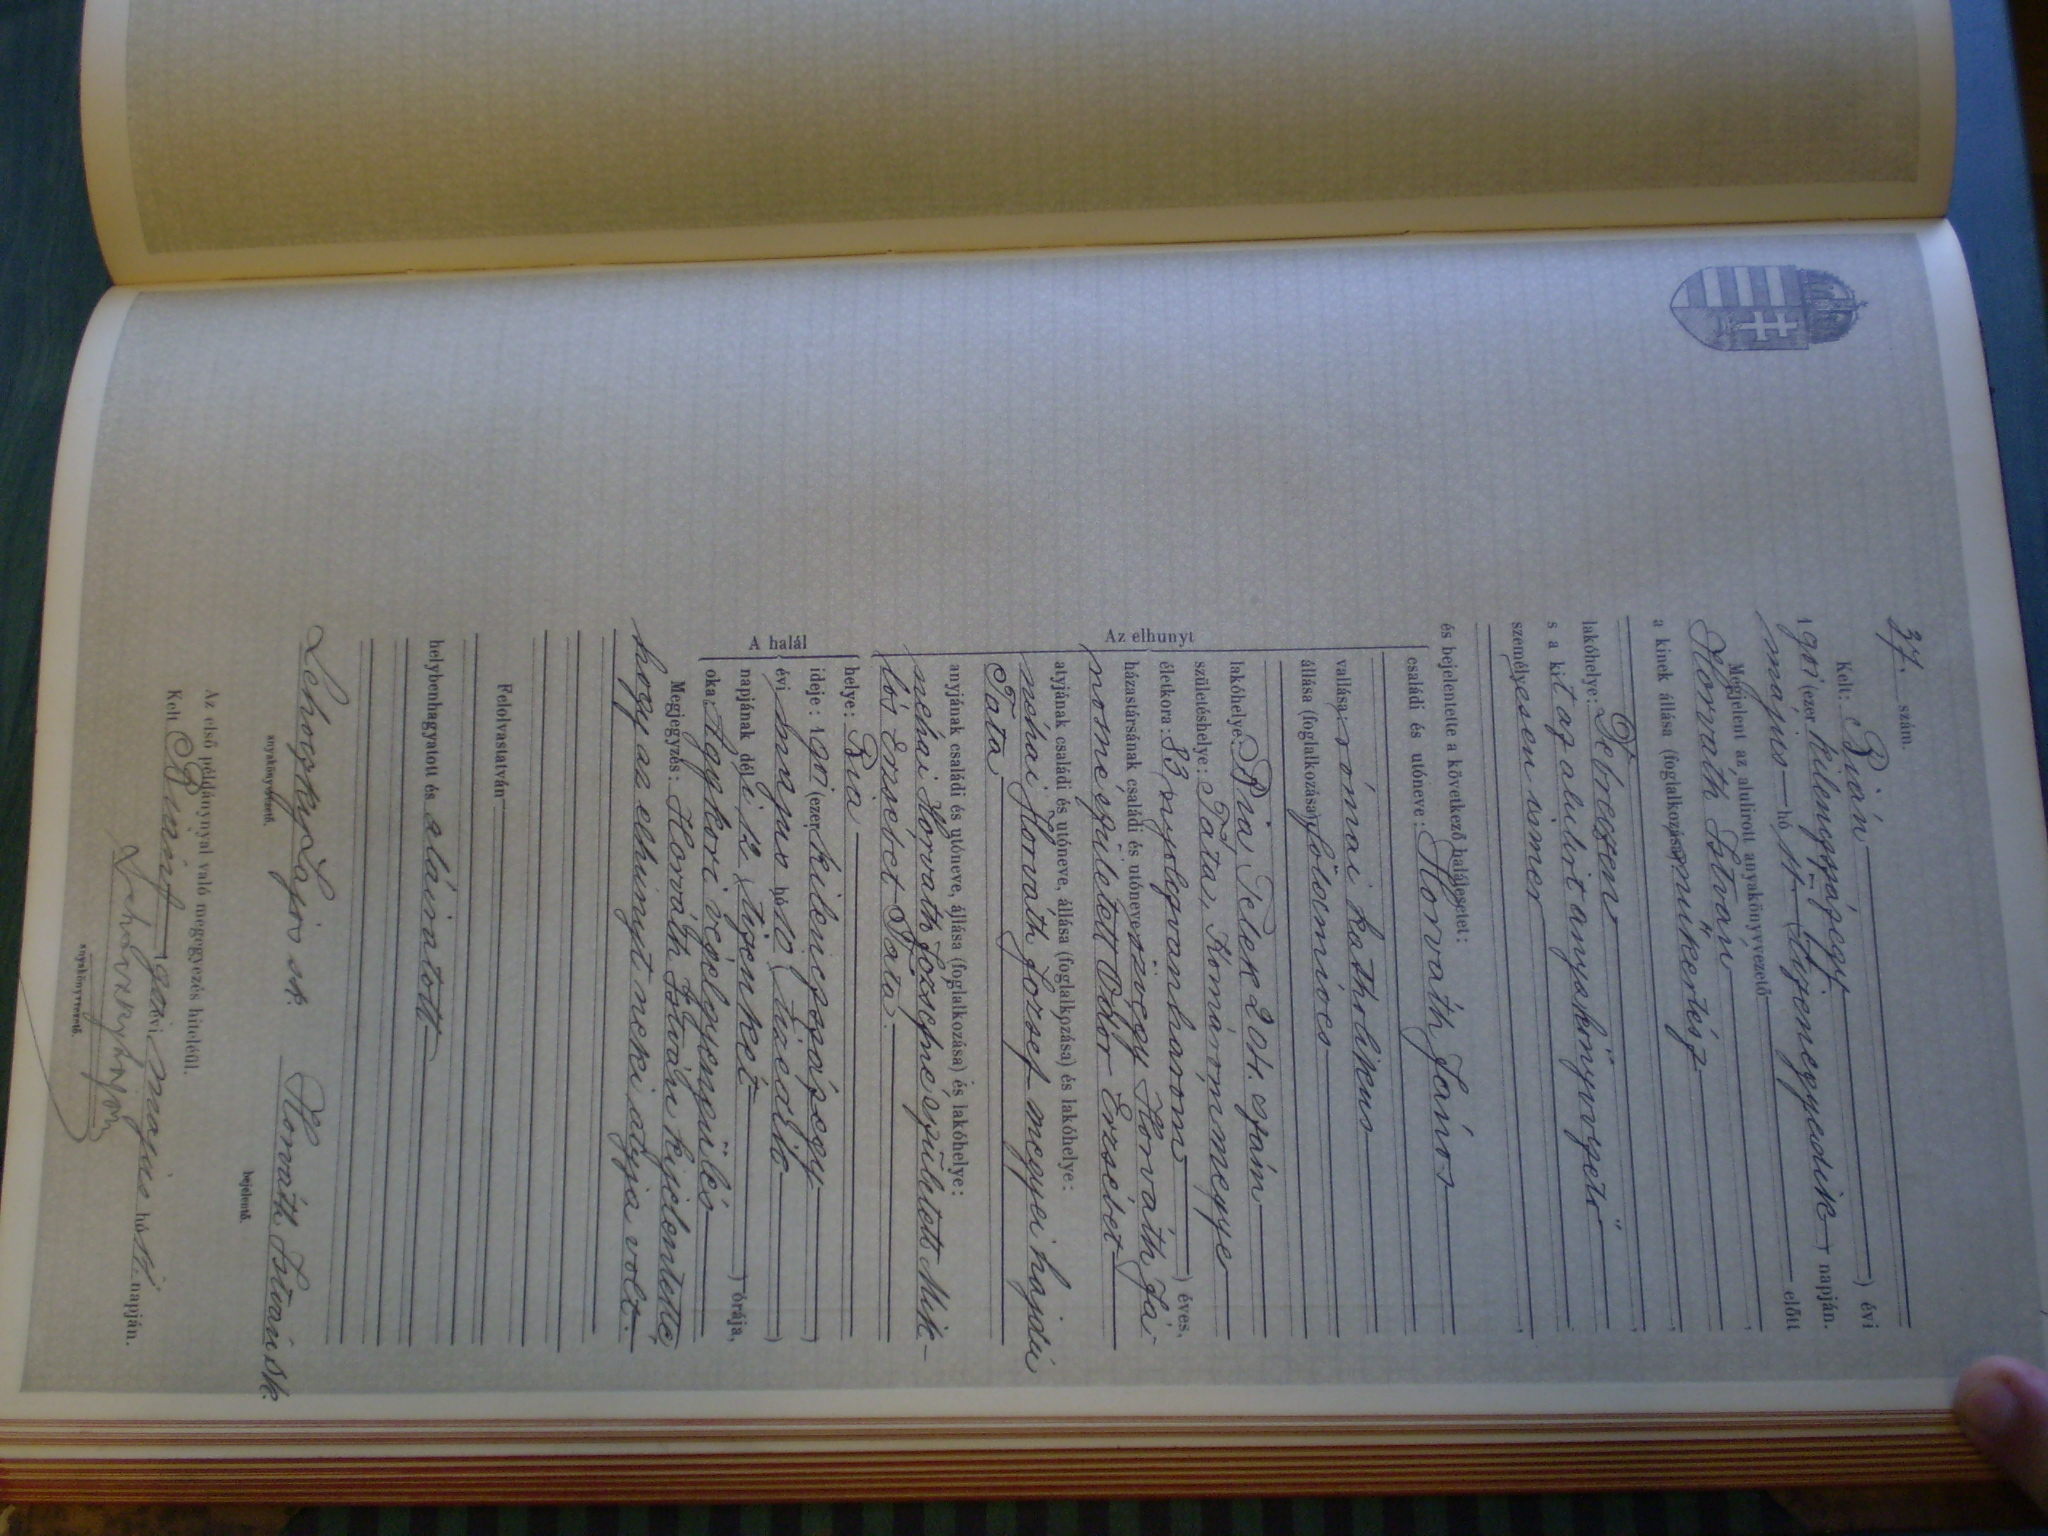 37. szám.
Kelt: Bián ) évi
1901 (ezer kilenczszázegy napján.
május hó 11. tizenegyedik
Megjelent az alulirott anyakönyvvezető előtt
Horváth István
a kinek állása (foglalkozása): műkertész
lakóhelye: Debreczen
s a kit az alulirt anyakönyvvezető
személyesen ismer
és bejelentette a következő halálesetet:
Az elhunyt
családi és utóneve: Horváth János
vallása: római katholikus
állása (foglalkozása): földmíves
lakóhelye: Bia, Telek 204. szám
születéshelye: Tata, Komárommegye
életkora: 83 nyolczvanhárom ) éves,
házastársának családi és utóneve: özvegy Horváth Já
nosné született Odor Erzsébet
atyjának családi és utóneve, állása (foglalkozása) és lakóhelye:
néhai Horváth József megyei hajdú
Tata
anyjának családi és utóneve, állása (foglalkozása) és lakóhelye:
néhai Horváth Józsefné született Mik-
lós Erzsébet Tata.
A halál
helye: Bia
ideje: 1901 (ezer kilenczszázegy )
évi május hó 10 (tizedik )
napjának déli 12 (tizenkét ) órája,
oka: Aggkori végelgyengülés
Megjegyzés: Horváth István kijelentette,
hogy az elhunyt neki atyja volt.
Felolvastatván
helybenhagyatott és aláiratott.
Lehoczky Lajos sk. Horváth István sk.
anyakönyvvezető. bejelentő.
Az első példánynyal való megegyezés hiteléül.
Kelt Bián, 1901 évi május hó 11. napján.
Lehoczky Lajos
anyakönyvvezető.